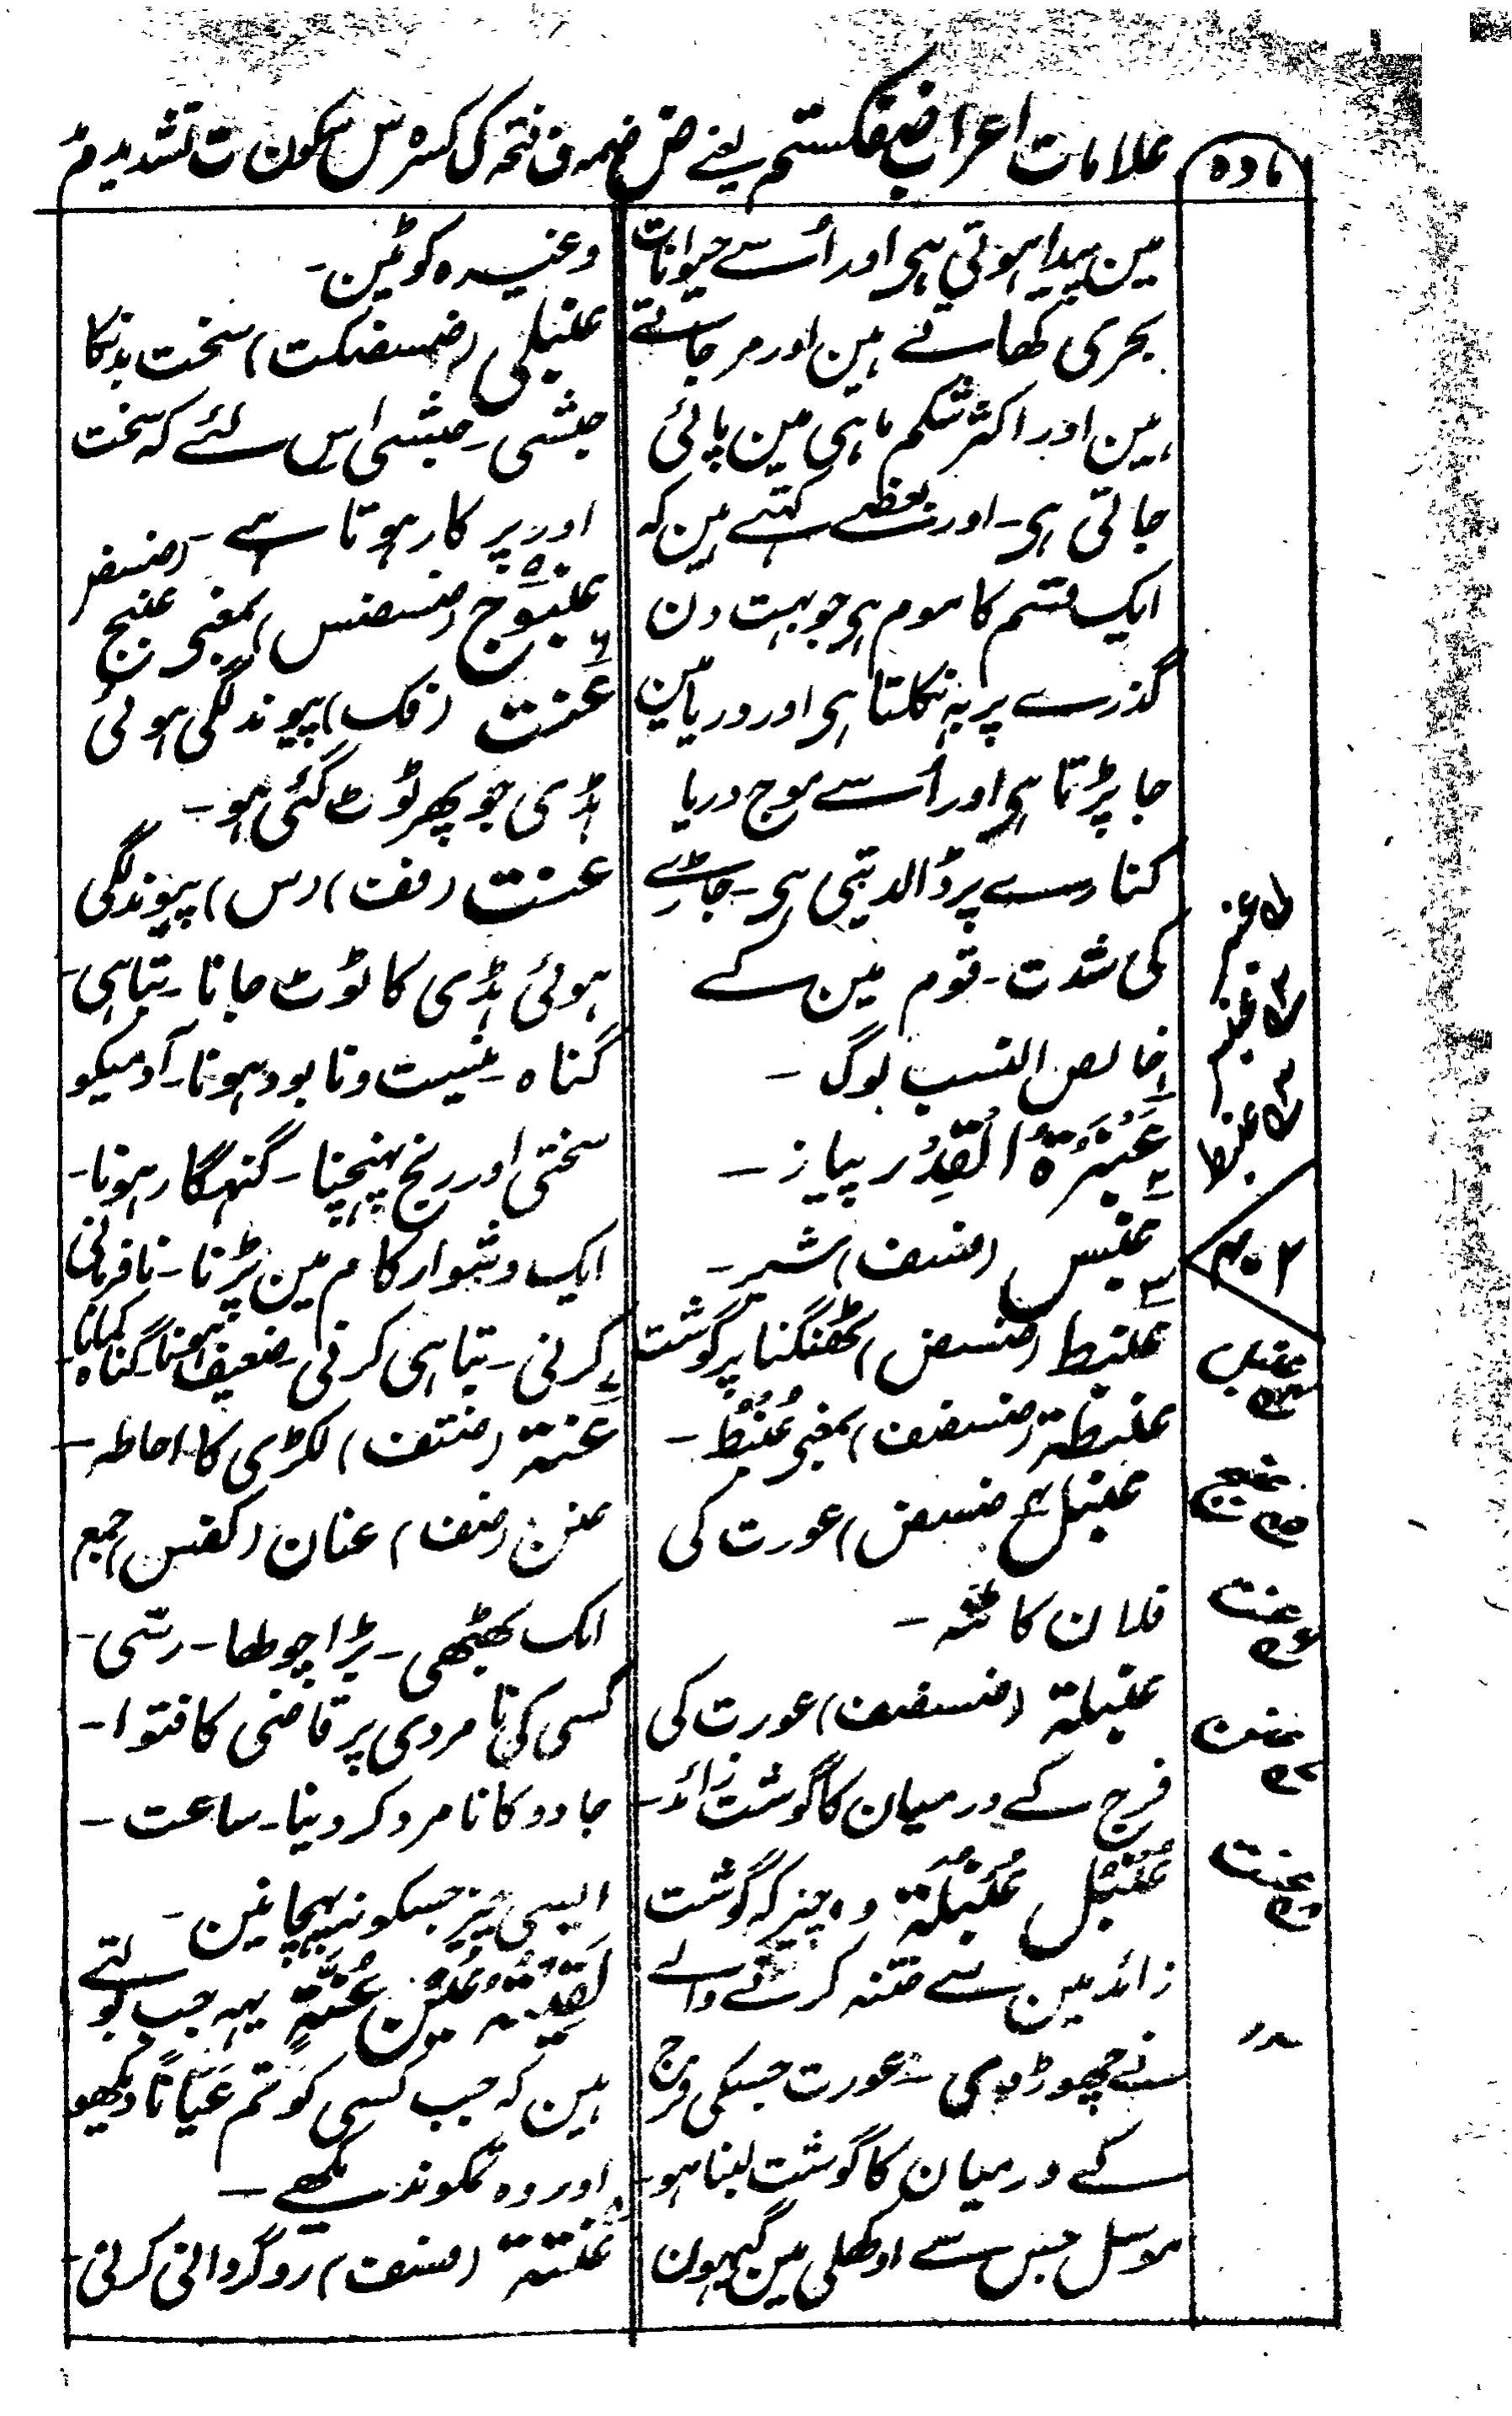 علامات اعراب ضفکستم یعنے ض ضمہ ف فتحہ ک کسرہ س سکون ت تشدید م
مادہ
مین پیدا ہوتی ہی اور اُسے حیوانات
بحری کھاتے ہین اور مر جاتے
ہین اور اکثر شکم ماہی مین پائی
جاتی ہی۔ اور بعضے کہتے ہین کہ
ایک قسم کا موم ہی جو بہت دن
گذرے پر یہ نکلتا ہی اور دریا مین
جا پڑتا ہی اور اُسے موج دریا
کنارے پر ڈالدیتی ہی۔ جاڑے
کی شدت۔ قوم مین کے
خالص النسب لوگ۔
عَنْبَرَةُ الْقِدْر پیاز۔
عنبس (فسف) شیر۔
عنبط (ضسض) ٹھنگنا پر گوشت
عنبطة (ضسضف) بمعنی عُنْبُطْ۔
عنبل (ضسض) عورت کی
فلان کا ٹنہ۔
عنبلة (ضسضف) عورت کی
فرج کے درمیان کا گوشت زائد۔
عُنْبُل عُنْبُلَة وہ چیز کہ گوشت
زائد مین سے ختنہ کرنے والے
نے چھوڑ دی۔ عورت جسکی فرج
کے درمیان کا گوشت لنبا ہو۔
موسل جس سے اوکھلی مین گیہون
وغیرہ کوٹین۔
عنبلی (ضسضکت) سخت بدنکا
حبشی۔ حبشی اس لئے کہ سخت
اور پر کار ہوتا ہے۔
عنبوج (ضسضس) بمعنی عنبج (ضسض
عنت (فک) پیوند لگی ہوئی
ہڈی جو پھر ٹوٹ گئی ہو۔
عنت (فف) (س) پیوند لگی
ہوئی ہڈی کا ٹوٹ جانا۔ تباہی۔
گناہ۔ نیست و نابود ہونا۔ آدمیکو
سختی اور رنج پہنچنا۔ گنہگار ہونا۔
ایک دشوار کام مین پڑنا۔ نافرمانی
کرنی۔ تباہی کرنی۔ ضعیف ہونا۔ گناہ کمانا۔
عنة (ضتف) لکڑی کا احاطہ۔
عنن (ضف) عنان (کفس) جمع
ایک بھٹھی۔ بڑا چوطھا۔ رسّی۔
کسی کی نامردی پر قاضی کا فتوا۔
جادو کا نامرد کر دینا۔ ساعت۔
ایسی چیز جسکو نہ پہچانین۔
لَقِیْتُہ عَیْن عُنَّة یہہ جب بولتے
ہین کہ جب کسی کو تم عَیَانًا دیکھو
اور وہ تمکو نہ دیکھے۔
عنتة (فسف) روگردانی کرنی۔
عنبس
عنبط
۴۰۲
عنبل
عنبج
عنت
عنن
عنت